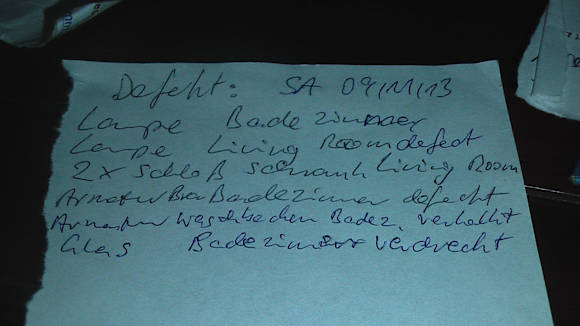 Defekt: SA 09/11/13
Lampe Badezimmer
Lampe Living Room defect
2x Schloß Schrank Living Room
Armatur Badezimmer defecht
Armatur Waschbecken Badez. verkalkt
Glas Badezimmer verdrecht